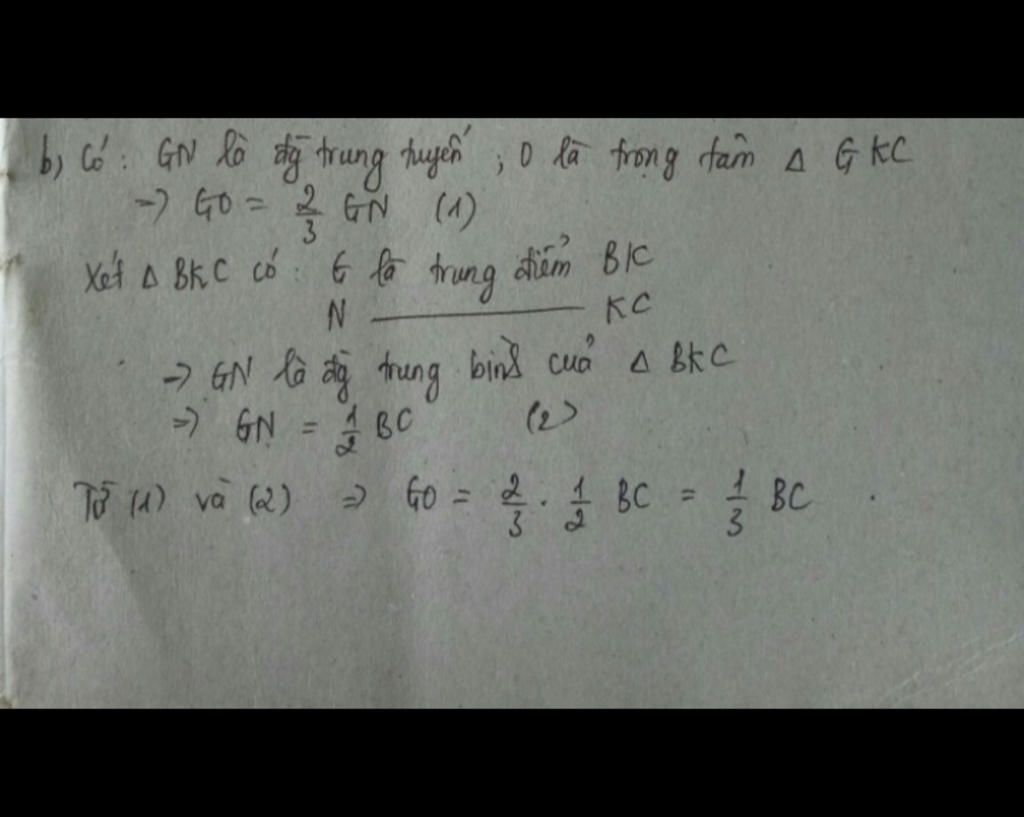 b) Có: GN là đg trung tuyến, O là trọng tâm Δ GKC
=> GO = 2/3 GN (1)
Xét Δ BKC có: G là trung điểm BK
N ——— KC
=> GN là đg trung bình của Δ BKC
=> GN = 1/2 BC (2)
Từ (1) và (2) => GO = 2/3 . 1/2 BC = 1/3 BC .